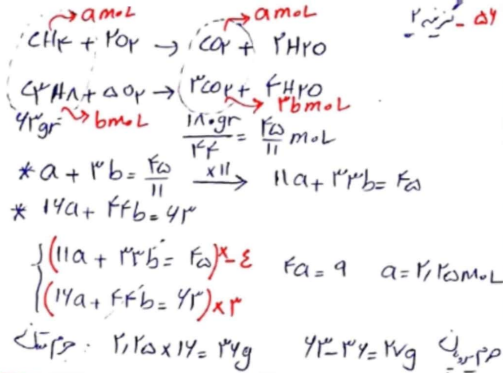 ۵۶- گزینه ۲
a mol a mol
CH۴ + ۲O۲ → CO۲ + ۲H۲O
C۳H۸ + ۵O۲ → ۳CO۲ + ۴H۲O
۶۳gr b mol ۳b mol
۱۸۰gr/۴۴ = ۴۵/۱۱ mol
* a + ۳b = ۴۵/۱۱ ×۱۱ → ۱۱a + ۳۳b = ۴۵
* ۱۶a + ۴۴b = ۶۳
(۱۱a + ۳۳b = ۴۵) × -۴ ۴a = ۹ a = ۲,۲۵ mol
(۱۶a + ۴۴b = ۶۳) × ۳
جرم متان : ۲,۲۵ × ۱۶ = ۳۶g ۶۳ - ۳۶ = ۲۷g جرم پروپان